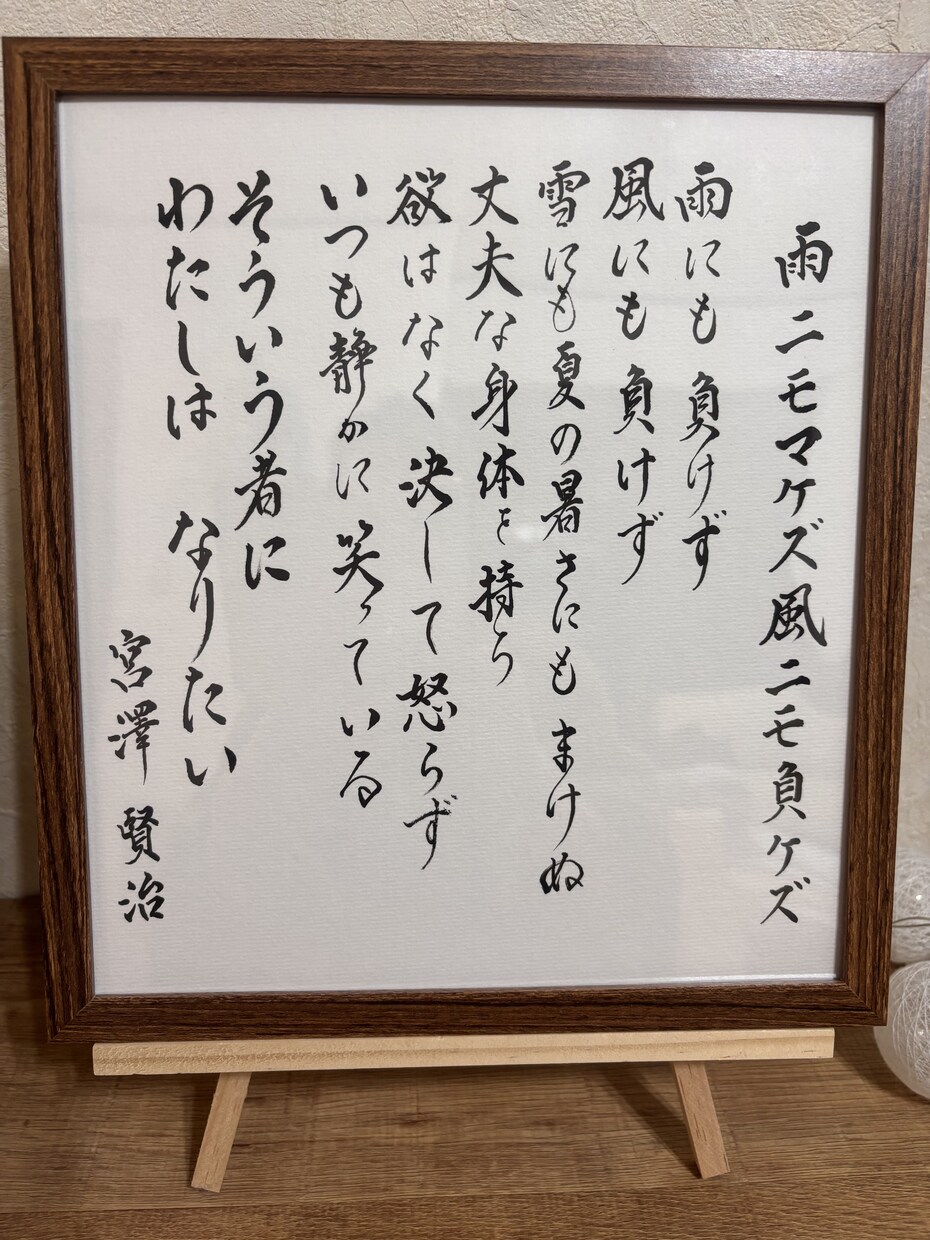 雨ニモマケズ風ニモ負ケズ
雨にも負けず
風にも負けず
雪にも夏の暑さにもまけぬ
丈夫な身体を持ち
欲はなく決して怒らず
いつも静かに笑っている
そういう者に
わたしは なりたい
宮澤 賢治